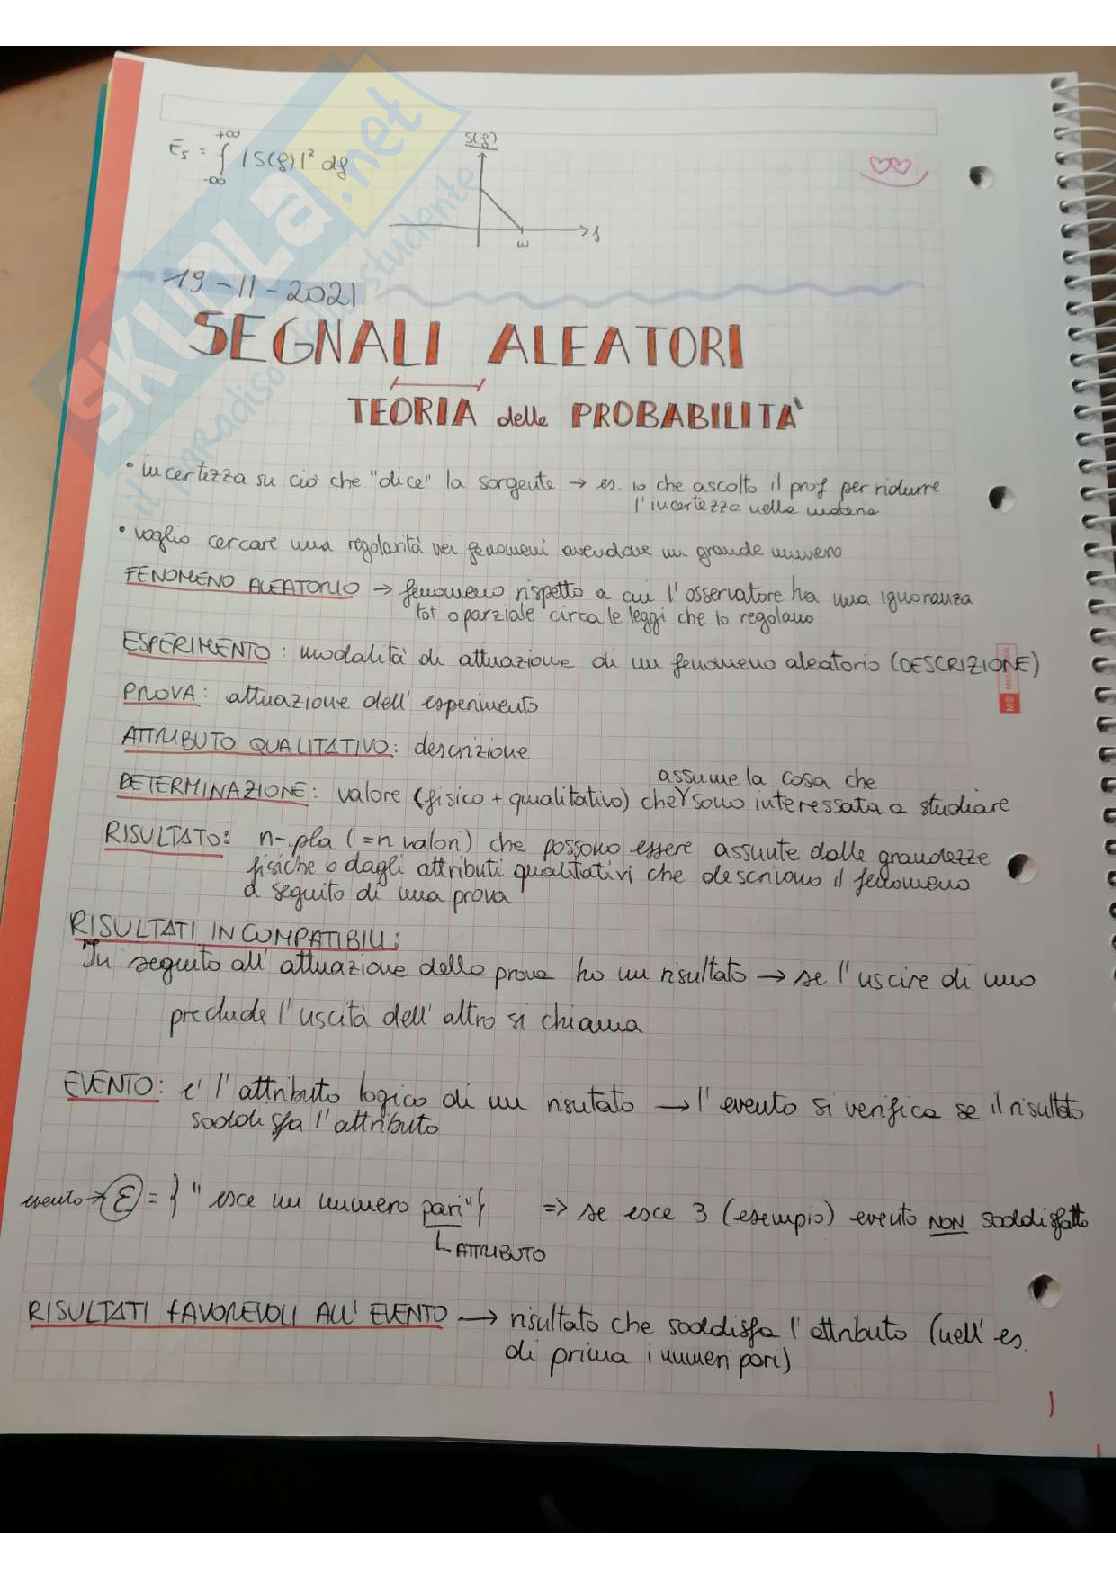 Es = ∫ |S(f)|² df
+∞
-∞
S(f)
w
f
19-11-2021
SEGNALI ALEATORI
TEORIA delle PROBABILITA'
• incertezza su ciò che "dice" la sorgente → es. io che ascolto il prof per ridurre
l'incertezza nella materia
• voglio cercare una regolarità nei fenomeni avendone un grande numero
FENOMENO ALEATORIO → fenomeno rispetto a cui l'osservatore ha una ignoranza
tot o parziale circa le leggi che lo regolano
ESPERIMENTO: modalità di attuazione di un fenomeno aleatorio (DESCRIZIONE)
PROVA: attuazione dell'esperimento
ATTRIBUTO QUALITATIVO: descrizione
assume la cosa che
DETERMINAZIONE: valore (fisico + qualitativo) che sono interessata a studiare
RISULTATO: n-pla (=n valori) che possono essere assunte dalle grandezze
fisiche o dagli attributi qualitativi che descrivono il fenomeno
a seguito di una prova
RISULTATI INCOMPATIBILI:
In seguito all'attuazione della prova ho un risultato → se l'uscire di uno
preclude l'uscità dell'altro si chiama
EVENTO: e' l'attributo logico di un risultato → l'evento si verifica se il risultato
soddisfa l'attributo
evento → E = { "esce un numero pari" { => se esce 3 (esempio) evento NON soddisfatto
ATTRIBUTO
RISULTATI FAVOREVOLI ALL'EVENTO → risultato che soddisfa l'attributo (nell'es.
di prima i numeri pari)
SKUOLA.net
il paradiso dello studente